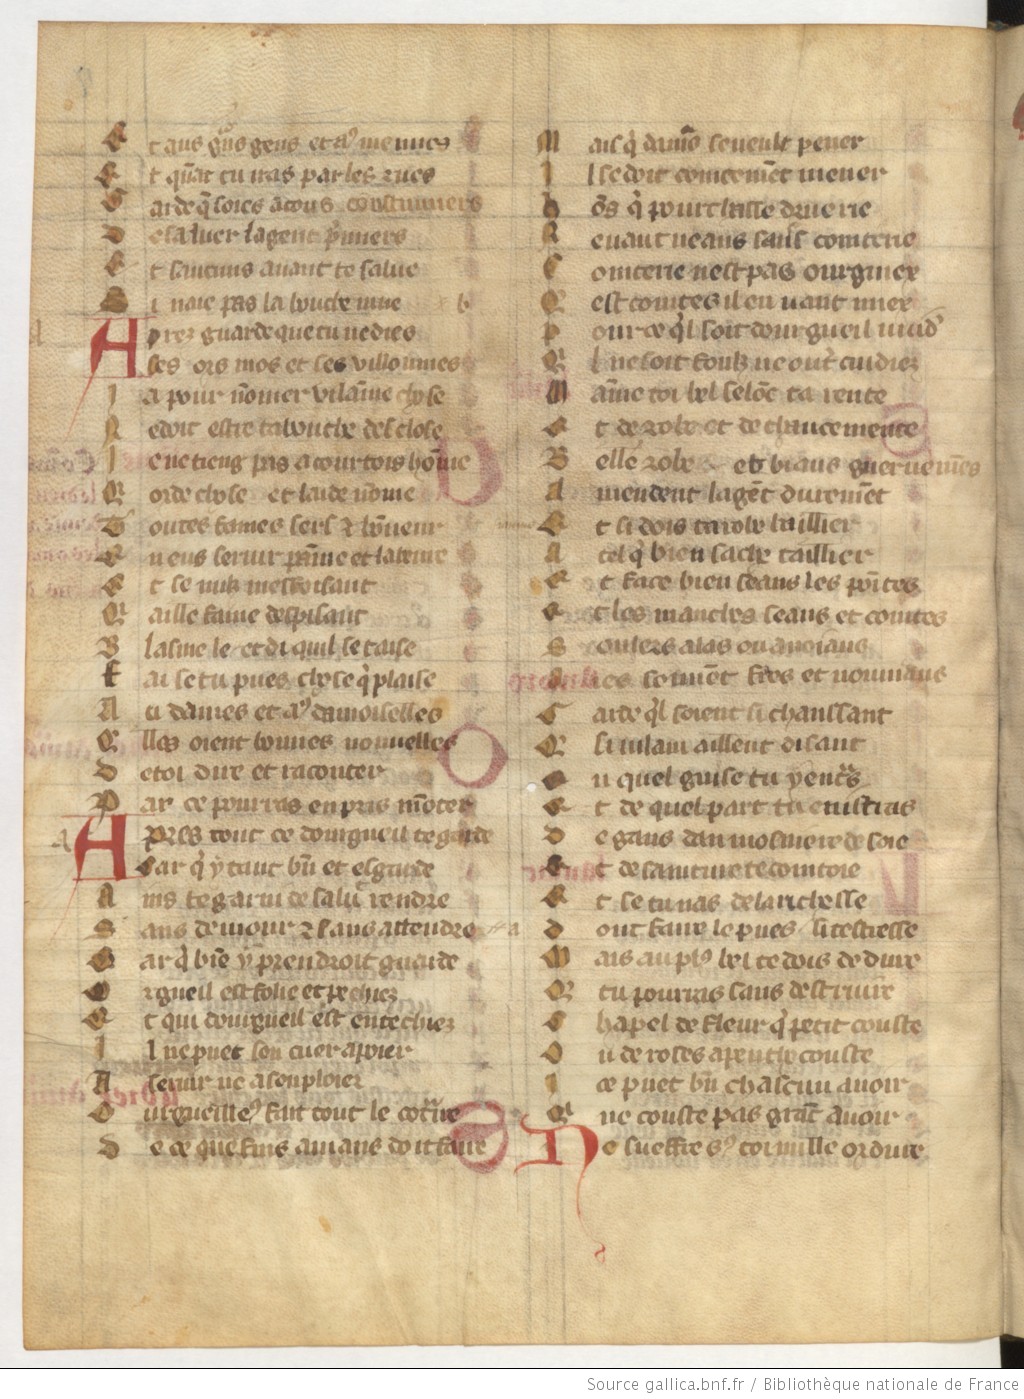 E t aus gñs gens et as menues
E t quãt tu iras par les rues
G arde q̃ soies acous coustumiers
D e saluer la gent p̃miers
E t saucuns auant te salue
S i naie pas la bouche mue b
A prez guarde que tu ne dies
les ors mos et les villonnies
I a pour nõmer vilainne chose
N e doit estre ta bouche desclose
I e ne tieng pas a courtois hõme
Q orde chose et laide nõme
T outes fames sers et hõneur
E n eus seruir painne et labeure
E t se nulz mesdisant
Q aille fame despisant
B lasme le et di quil se taise
F ai se tu pues chose q̃ plaise
A u dames et as damoiselles
E lles oient bonnes nouuelles
D e toi dire et raconter
P ar ce pourras en pris mõter
A pres tout ce dourgueil te garde
Car q̃ y taut bñ et esgarde
A ins te garni de salu rendre
S ans demour et sans attendre
C ar q̃ biẽ y prendroit guarde
O rgueil est folie et pechiez
E t qui dourgueil est entechiez
I l ne puet son cuer apoier
A seruir ne a souploier
O urgueilleus fait tout le cõtrire
D e ce que fins amans doit faire
M ais q̃ damours se veult pener
I l se doit cointemẽt mener
h õs q̃ pourchasse druerie
N e uaut neans sans cointerie
C ointerie nest pas ourguiex
Q est cointes il en uaut miex
P our ce q̃l soit dourgueil uuid
Q l ne soit foulz ne oultrecuidiez
M aine toi bel selõc ta rente
E t de robe et de chaucemente
B elle robe et biaus guernemẽs
A mendent la gẽt duremẽt
E t si dois ta robe baillier
A tel q̃ bien sache taillier
E t face bien seans les pointes
E t les manches seans et cointes
S oulers a las ou anoiaus
A ies souuẽt frés et nouuiaus
G arde q̃l soient si chaussant
Q si uilain aillent disant
E n quel guise tu y entras
E t de quel part tu en istras
D e gans daumosniere de soie
E t de sainture te cointoie
E t se tu nas de la richesse
D ont faire le pues si testresse
M ais au plus bel te dois deduire
Q tu pourras sans destruire
C hapel de fleur q̃ petit couste
O u de roses a penthecouste
I ce puet bñ chascun auoir
Q ne couste pas grãt auoir
N e sueffre sus toi nulle ordure